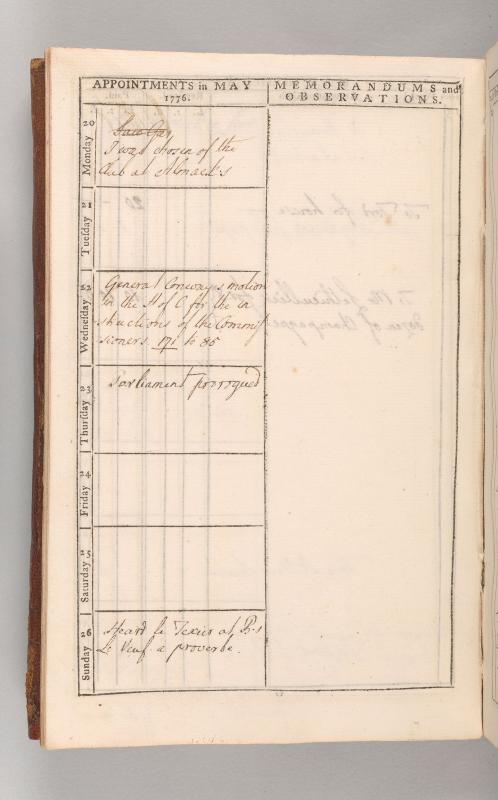 APPOINTMENTS in MAY
1776.
MEMORANDUMS and
OBSERVATIONS.
Monday 20
I was chosen of the
Club at Almack's
Tueſday 21
Wedneſday 22
General Conway's motion
in the H of C for the in
structions of the Commiſ
sioners. 171 to 85
Thurſday 23
Parliament prorogued
Friday 24
Saturday 25
Sunday 26
Heard le Texier at
Le Veuf a proverbe.